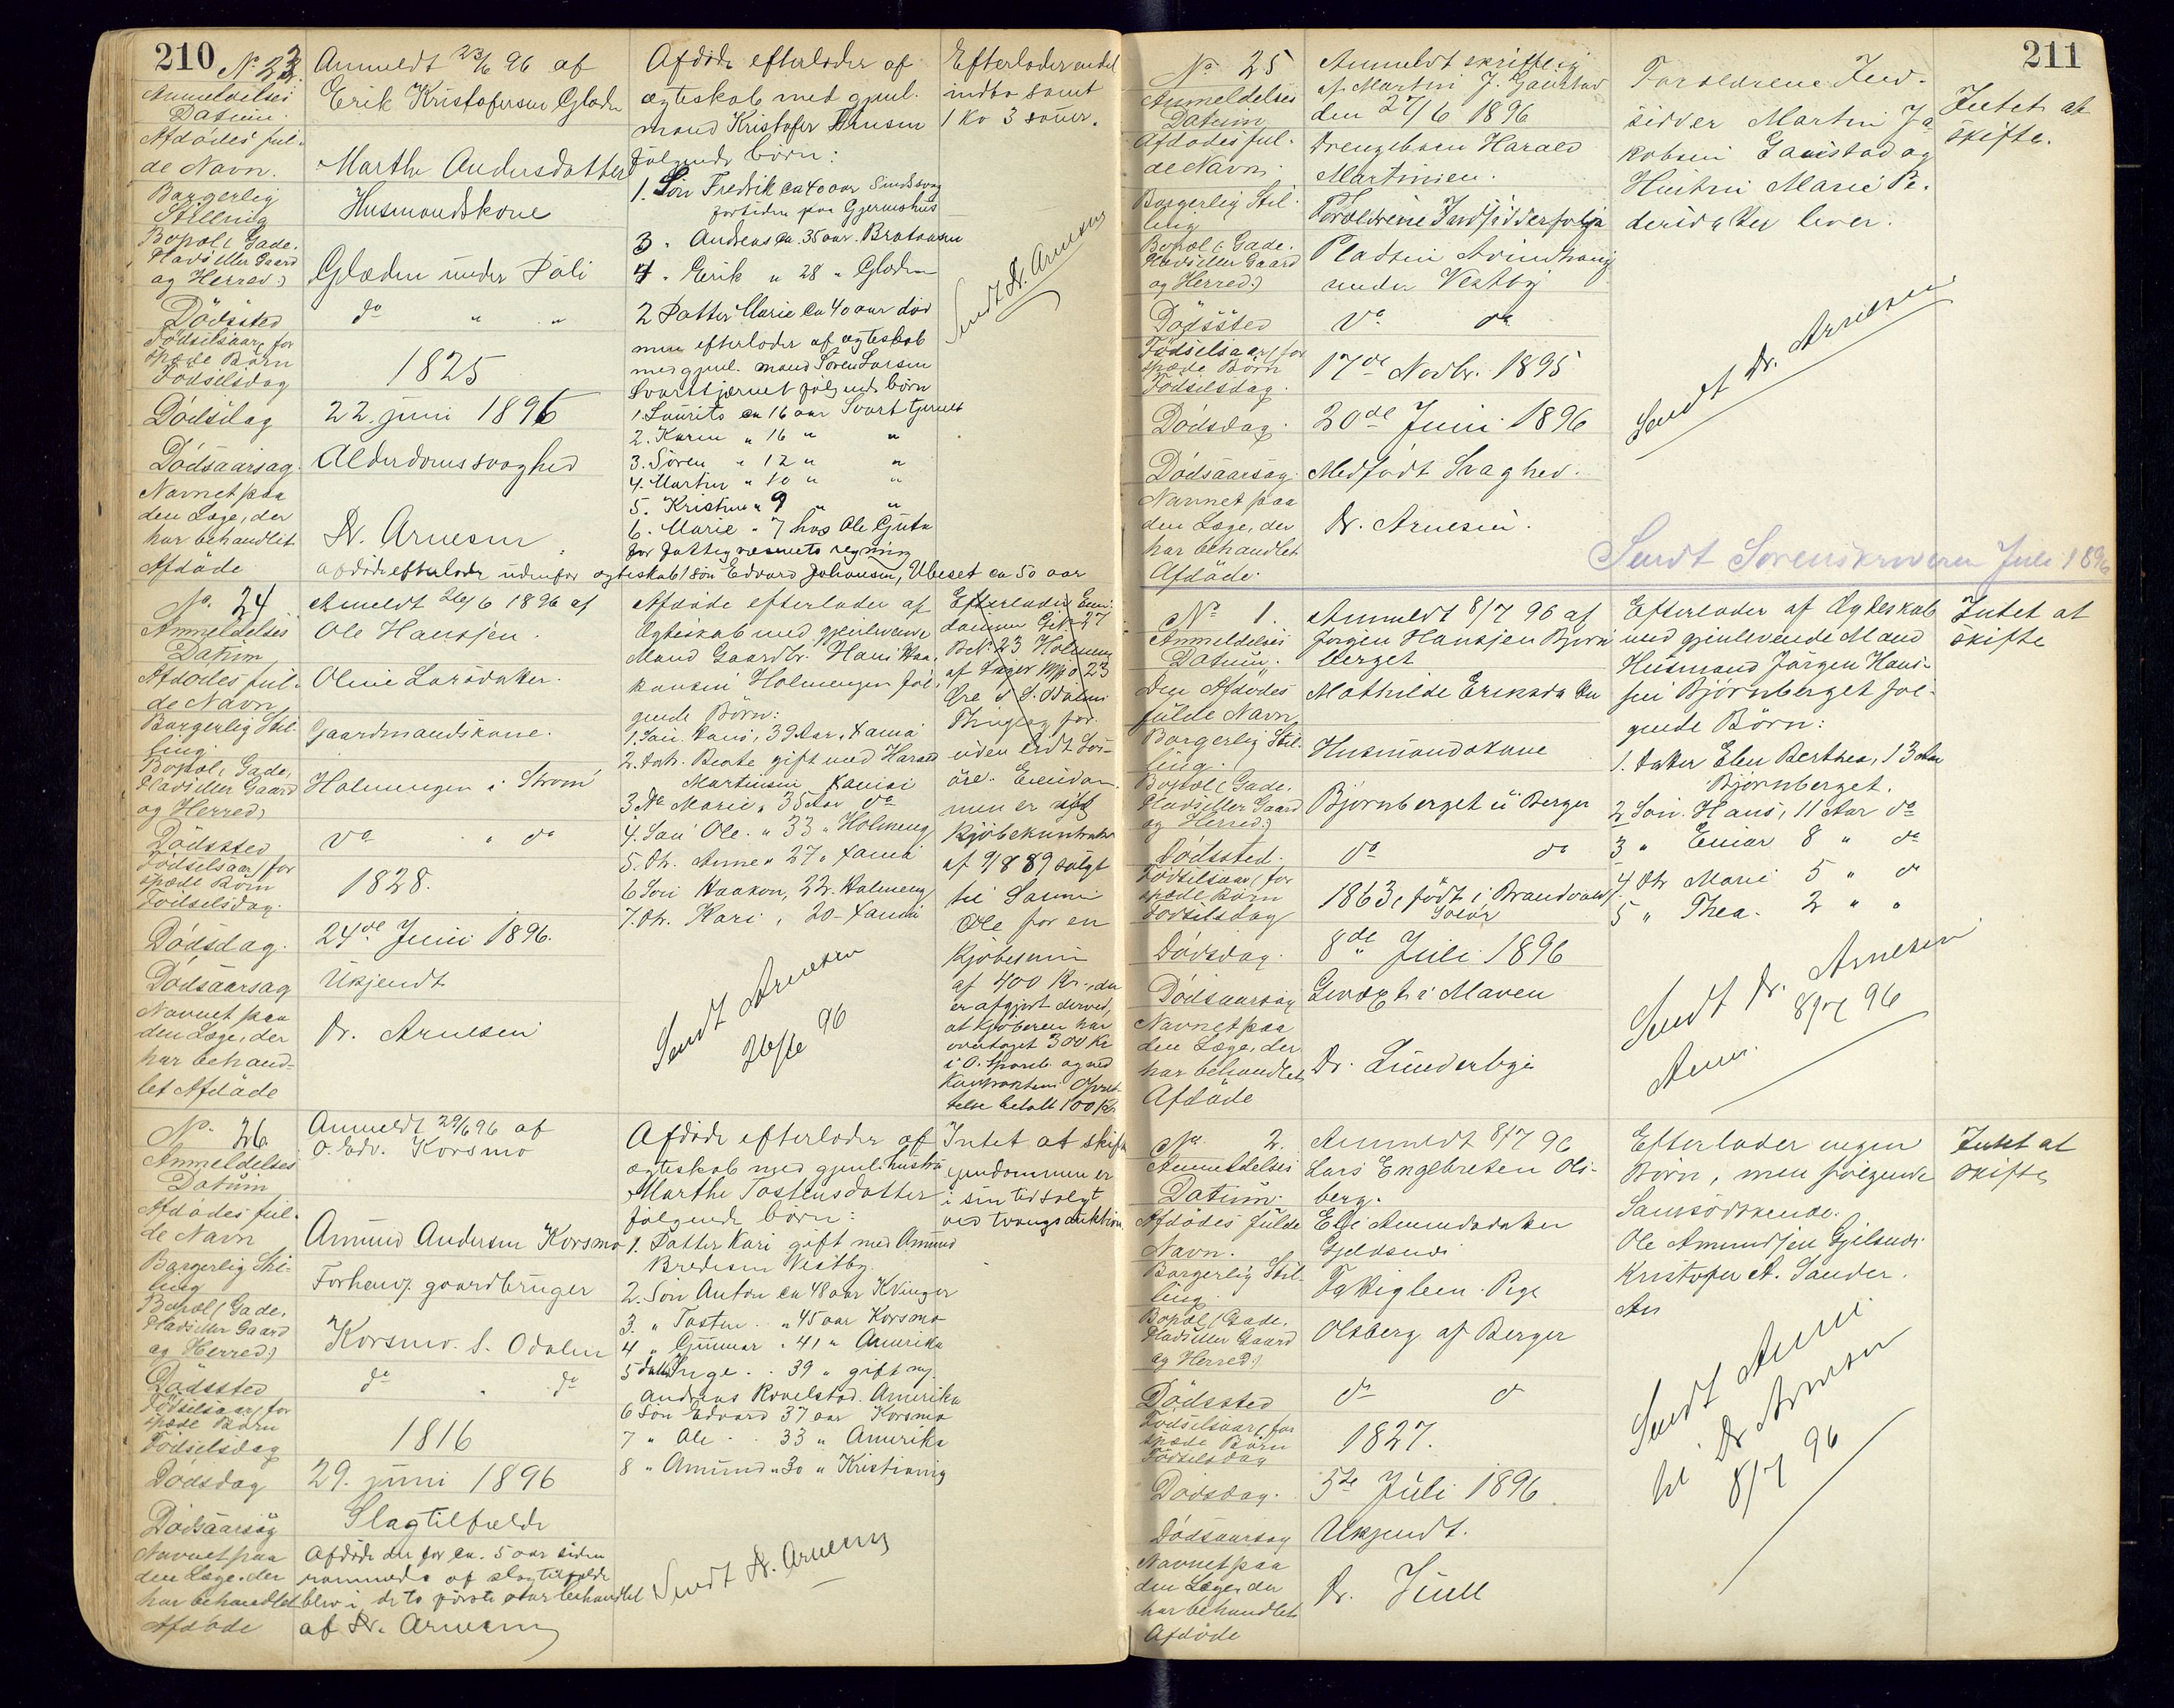 210
No 23.
Anmeldelses
Datum.
Afdødes ful-
de Navn.
Borgerlig
Stilling
Bopæl (Gade,
Plads eller Gaard
og Herred)
Dödssted
Födselsaar, for
spæde Börn
Födselsdag
Dödsdag
Dödsaarsag.
Navnet paa
den Læge, der
har behandlet
Afdöde
Anmeldt 23/6 96 af
Erik Kristofersen Gladen
Marthe Andersdatter
Husmandskone
Gladen under Sali
do " "
1825
22. juni 1896
Alderdomssvaghed
Dr. Arnesen
Afdöde efterlader af
ægteskab med gjenl.
mand Kristofer Arnesen
følgende börn:
1. Sön Fredrik ca 40 aar Sindssvag
fortiden paa Gjermshus
3. " Andreas ca. 35 aar. Brataasen
4. " Erik " 28 " Gladen
2 Datter Marie ca 40 aar död
men efterlader af ægteskab
med gjenl. mand Sören Larsen
Svarttjernet følgende börn
1. Laurits ca 16 aar Svarttjernet
2. Karen " 16 " "
3. Sören " 12 " "
4. Martin " 10 " "
5. Kristine " 9 " "
6. Marie " 7 hos Ole Guta
for fattigvæsenets regning
afdöde efterlader udenfor ægteskab 1 sön Edvard Johansen, Ulseset ca 50 aar
Efterlader endel
indbo samt
1 Ko 3 sauer.
Sendt Dr. Arnesen
No. 24
Anmeldelses
Datum
Afdødes ful-
de Navn
Borgerlig Stil-
ling.
Bopæl, Gade,
Plads eller Gaard
og Herred)
Dödssted
Födselsaar, for
spæde Börn
Födselsdag.
Dödsdag.
Dödsaarsag
Navnet paa
den Læge, der
har behand-
let Afdöde
Anmeldt 26/6 1896 af
Ole Hansen.
Oline Larsdatter.
Gaardmandskone.
Holmengen i Strøm
do " do
1828.
24de Juni 1896.
Ukjendt
Dr. Arnesen
Afdøde efterlader af
Ægteskab med gjenlevende
Mand Gaardbr. Hans Haa-
konsen Holmengen føl-
gende Börn:
1. Sön. Hans, 39 Aar,
2. Datr. Beate gift med Harald
Martinsen
3. Do Marie " 35 Aar do
4. Sön Ole. " 33 " Holmeng
5. Dtr. Anne " 27 "
6 Sön Haakon, 22. Holmeng
7. Dtr. Kari, 20 -
Sendt Arnesen
26/6 96
Efterlader Eien-
dommen GNo 27
BNo. 23 Holmeng
af 23
Öre i S. Odalens
Thinglag for-
uden lidt Lös-
öre. Eiendom-
men er
Kjöbekontrakt
af 9/8 89 solgt
til Sönnen
Ole for en
Kjöbesum
af 400 Kr., der
er afgjort derved,
at Kjöberen har
overtaget 300 Kr
i O. Spareb. og ved
Kontraktens Opret-
telse betalt 100 Kr.
No. 26
Anmeldelses
Datum
Afdødes ful-
de Navn
Borgerlig Stil-
ling
Bopæl (Gade,
Plads eller Gaard
og Herred)
Dödssted
Födselsaar, for
spæde Börn
Födselsdag
Dödsdag
Dödsaarsag
Navnet paa
den Læge, der
har behandlet
Afdöde
Anmeldt 29/6 96 af
O. Edv. Korsmo
Amund Andersen Korsmo
Forhenv. gaardbruger
Korsmo. S. Odalen
do " do
1816
29. juni 1896
Slagtilfælde
Afdöde der for ca. 5 aar siden
rammedes af slagtilfælde
blev i de to første aar behandlet
af Dr. Arnesen
Afdöde efterlader af
ægteskab med gjenl. hustru
Marthe Tostensdatter
følgende börn:
1. Datter Kari gift med Amund
Bredesen Vestby.
2. Sön Anton ca 48 aar KVinger
3. " Tosten. " 45 aar Korsmo
4 " Gunnar " 41 " Amerika
5 datter Inge. " 39 " gift m.
Andreas Rovelstad. Amerika
6 Sön Edvard 37 aar Korsmo
7 " Ole " 33 " Amerika
8 " Amund " 30 " Kristiania
Sendt Dr. Arnesen
Intet at skifte
eiendommen er
i sin tid solgt
ved tvangsauktion
211
No 25
Anmeldelses
Datum
Afdødes ful-
de Navn
Borgerlig Stil-
ling
Bopæl (Gade,
Plads eller Gaard
og Herred)
Dödssted
Födselsaar (for
spæde Börn
Födselsdag.
Dödsdag.
Dödsaarsag.
Navnet paa
den Læge, der
har behandlet
Afdöde.
Anmeldt skriftlig
af Martin J. Gaustad
den 27/6 1896
Drengebarn Harald
Martinsen.
Forældrene Indsidderfolk
Pladsen
under Vestby
do do
17de Novbr. 1895
20de Juni 1896
Medfödt Svaghed.
Dr. Arnesen.
Forældrene Ind-
sidder Martin Ja-
kobsen Gaustad og
Hustru Marie Pe-
dersdatter lever.
Sendt Dr. Arnesen
Intet at
skifte.
Sendt Sorenskriveren Juli 1896
No 1.
Anmeldelses
Datum.
Den Afdødes
fulde Navn
Borgerlig Stil-
ling.
Bopæl (Gade,
Plads eller Gaard
og Herred)
Dödssted.
Födselsaar, for
spæde Börn
Födselsdag
Dödsdag.
Dödsaarsag
Navnet paa
den Læge, der
har behandlet
Afdöde
Anmeldt 8/7 96 af
Jørgen Hansen Bjørn-
berget
Mathilde Eriksdatter
Husmandskone
Bjørnberget u Berger
do do
1863, født i Brandvold
Solør
8de Juli 1896
i Maven
Dr. Lunderbye
Efterlader af Ægteskab
med gjenlevende Mand
Husmand Jørgen Han-
sen Bjørnberget føl-
gende Börn:
1. Datter Elen Berthea, 13 Aar
Bjørnberget.
2 Sön. Hans, 11 Aar do
3 " Einar 8 " do
4 Dtr Marie 5 " do
5 " Thea. 2 " "
Sendt Dr. Arnesen
8/7 96
Intet at
skifte
No. 2.
Anmeldelses
Datum.
Afdødes fulde
Navn.
Borgerlig Stil-
ling
Bopæl (Gade,
Plads eller Gaard
og Herred)
Dödssted
Födselsaar, for
spæde Börn
Födselsdag
Dödsdag.
Dödsaarsag
Navnet paa
den Læge, der
har behandlet
Afdöde
Anmeldt 8/7 96
Lars Engebretsen Ols-
berg.
Eli Amundsdatter
Fattiglem. Pige
Olsberg af Berger
do do
1827.
5te Juli 1896.
Ukjendt.
Dr. Juell
Efterlader ingen
Børn, men følgende
Samsödskende.
Ole Amundsen
Kristofer A. Sander.
Sendt
til Dr Arnesen
8/7 96
Intet at
skifte